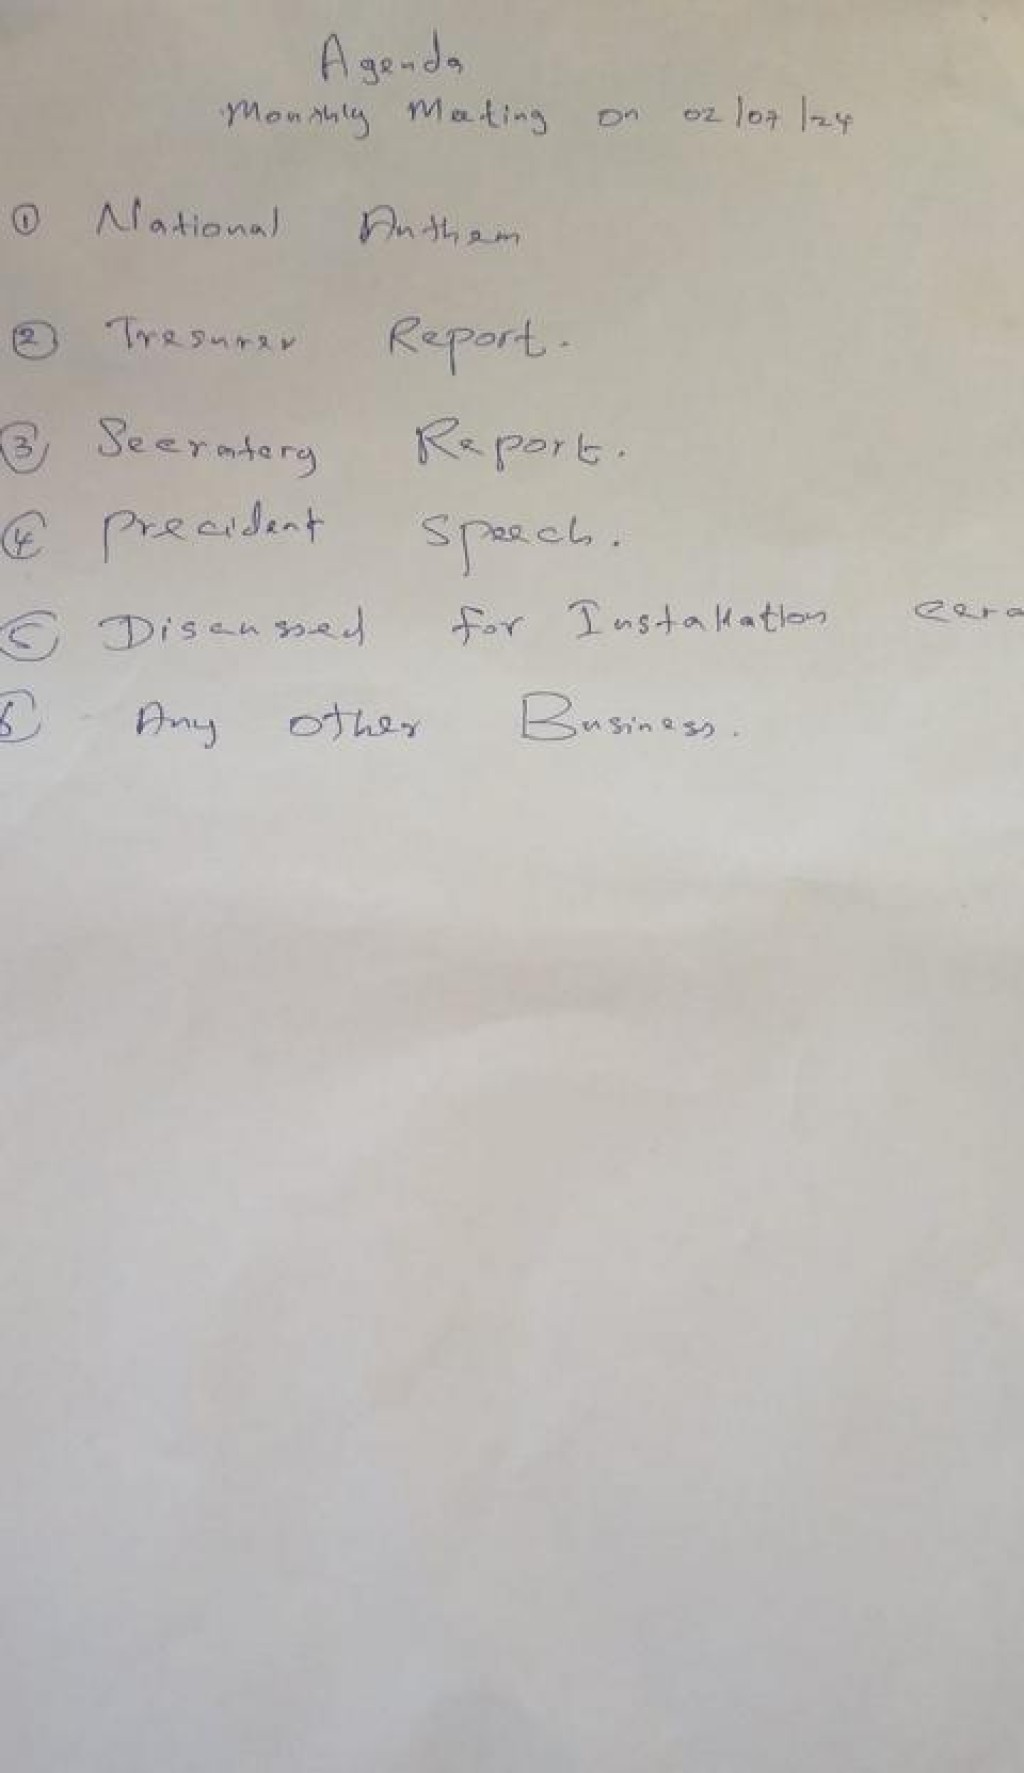 Agenda
Monthly Meeting on 02/07/24
① National Anthem
② Tresurer Report.
③ Secratery Report.
④ Precident Speech.
⑤ Discussed for Installation cere
⑥ Any other Business.